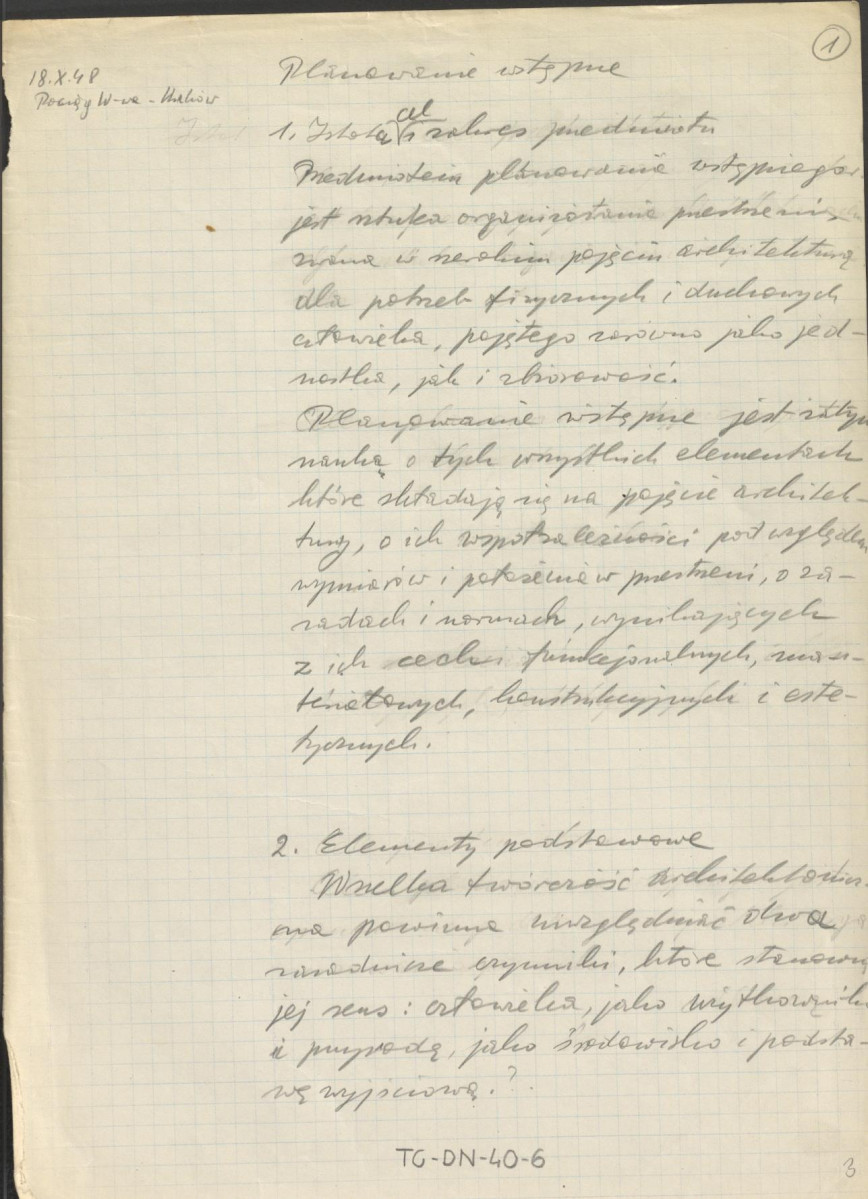 1
18.X.48
Pociąg W-wa - Kraków
Planowanie wstępne
cel
1. Istota i zakres przedmiotu
Przedmiotem planowania wstępnego
jest sztuka organizowania przestrzeni,
zwana w szerokim pojęciu architekturą
dla potrzeb fizycznych i duchowych
człowieka, pojętego zarówno jako jed-
nostka, jak i zbiorowość.
Planowanie wstępne jest zatym
nauką o tych wszystkich elementach
które składają się na pojęcie architek-
tury, o ich współzależności pod względem
wymiarów i położenia w przestrzeni, o za-
sadach i normach, wynikających
z ich cech funkcjonalnych, ma-
teriałowych, konstrukcyjnych i este-
tycznych.
2. Elementy podstawowe
Wszelka twórczość architektonicz-
na powinna uwzględniać dwa
zasadnicze czynniki, które stanowią
jej sens: człowieka, jako użytkownika
i przyrodę, jako środowisko i podsta-
wę wyjściową.?
TC-DN-40-6
3